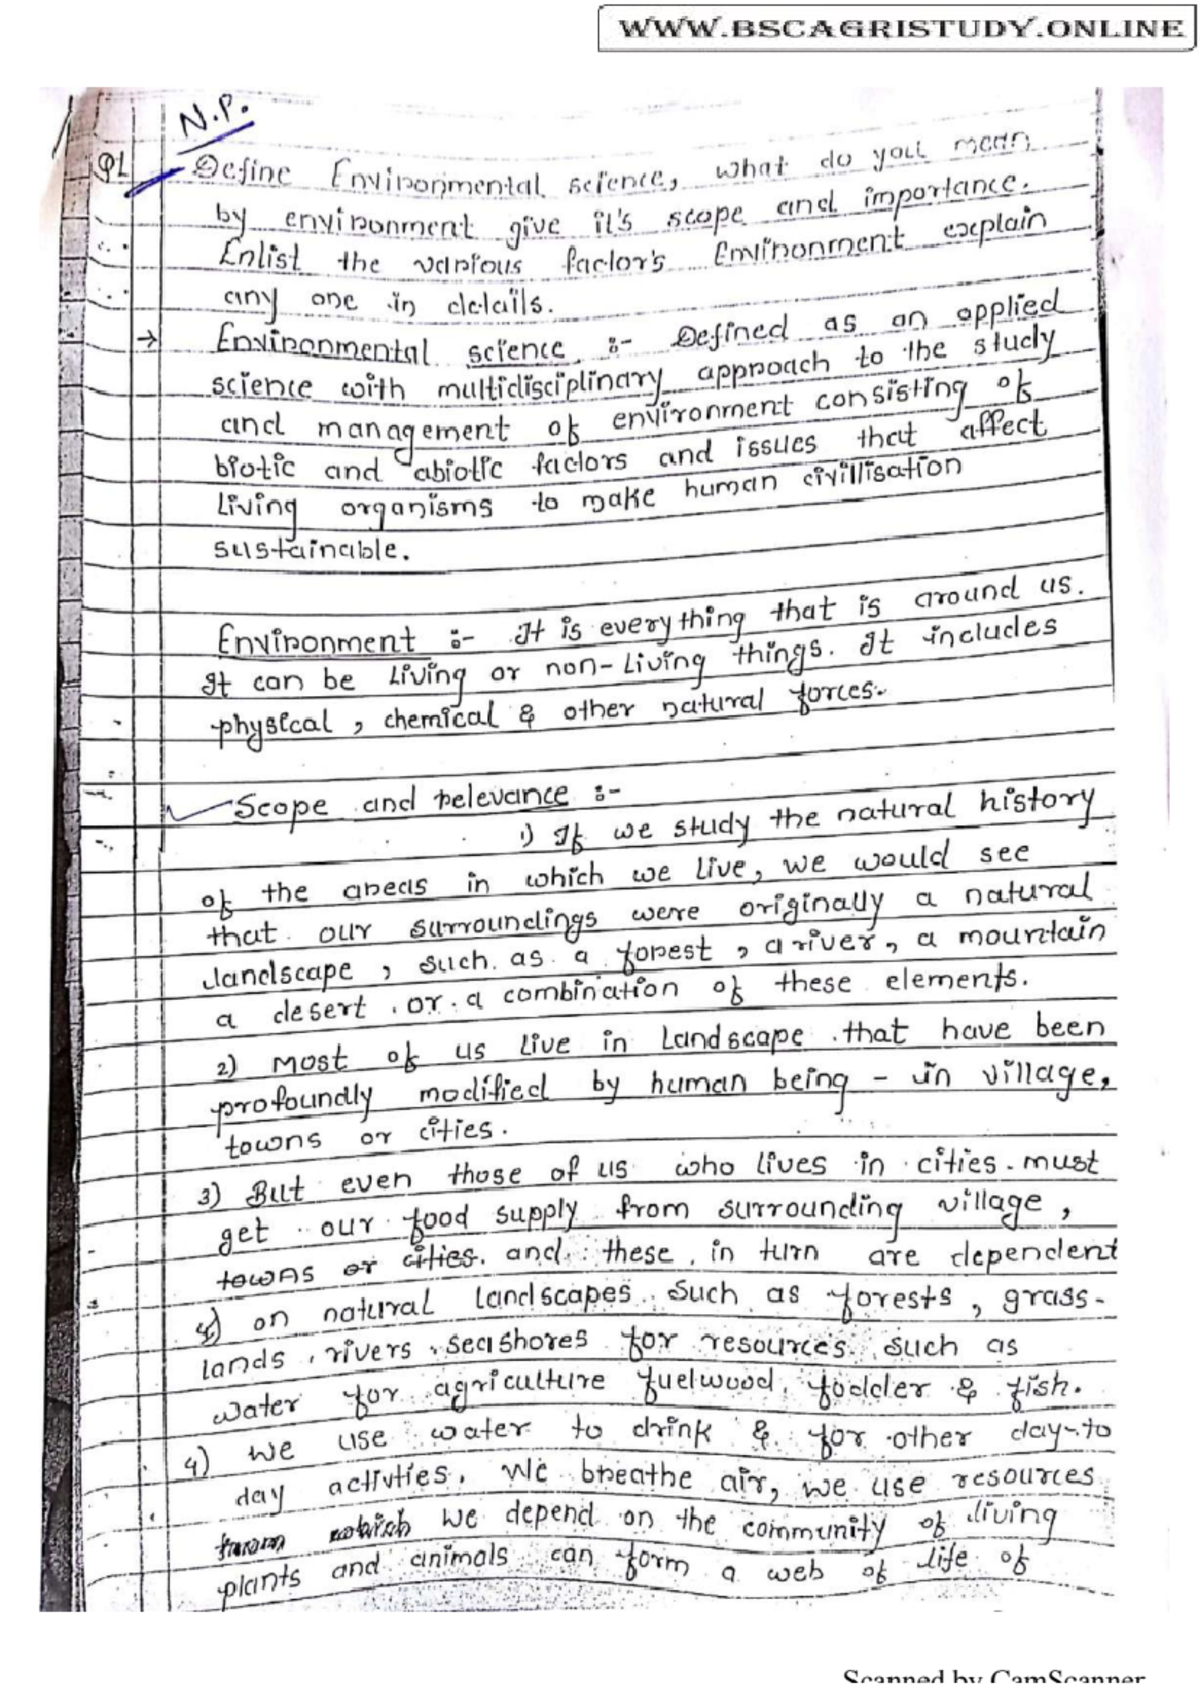 WWW.BSCAGRISTUDY.ONLINE
N.P.
Q1 Define Environmental science, what do you mean
by environment give it's scope and importance.
Enlist the various factor's Environment explain
any one in details.
→ Environmental science :- Defined as an applied
science with multidisciplinary approach to the study
and management of environment consisting of
biotic and abiotic factors and issues that affect
living organisms to make human civillisation
sustainable.
Environment :- It is everything that is around us.
It can be living or non-living things. It includes
physical, chemical & other natural forces.
Scope and relevance :-
1) If we study the natural history
of the areas in which we live, we would see
that our surroundings were originally a natural
landscape, such as a forest, a river, a mountain
a desert or a combination of these elements.
2) Most of us live in landscape that have been
profoundly modified by human being - in village,
towns or cities.
3) But even those of us who lives in cities must
get our food supply from surrounding village,
towns or cities. and these in turn are dependent
4) on natural landscapes such as forests, grass-
lands, rivers, seashores for resources such as
water for agriculture fuelwood, fodder & fish.
4) We use water to drink & for other day-to
day activties. We breathe air, we use resources
from which we depend on the community of living
plants and animals can form a web of life of
Scanned by CamScanner